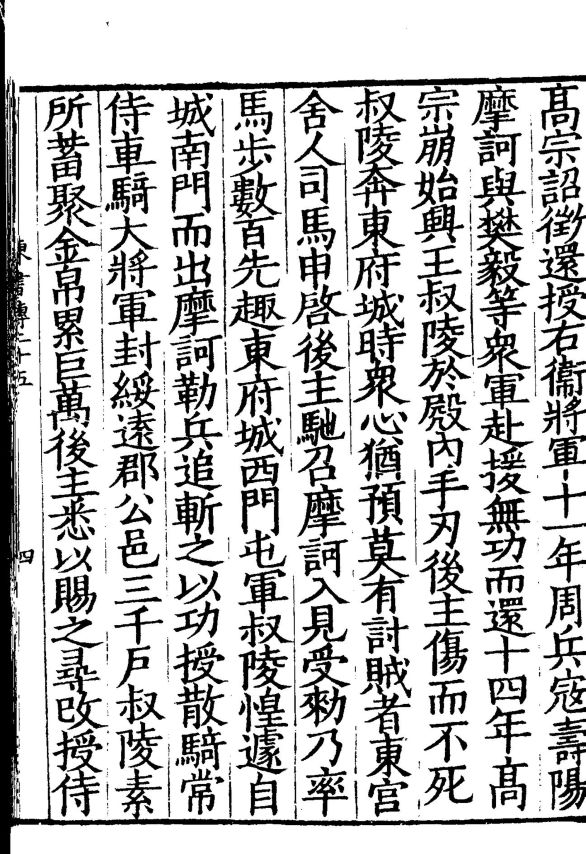 髙宗詔徵還授右衞將軍十一年周兵寇壽陽
摩訶與樊毅等衆軍赴援無功而還十四年髙
宗崩始興王叔陵於殿内手刃後主傷而不死
叔陵奔東府城時衆心猶預莫有討賊者東宮
舍人司馬申啓後主馳召摩訶入見受勑乃率
馬步數百先趣東府城西門屯軍叔陵惶遽自
城南門而出摩訶勒兵追斬之以功授散騎常
侍車騎大將軍封綏逺郡公邑三千戸叔陵素
所蓄聚金帛累巨萬後主悉以賜之尋改授侍
書傳二十五
四